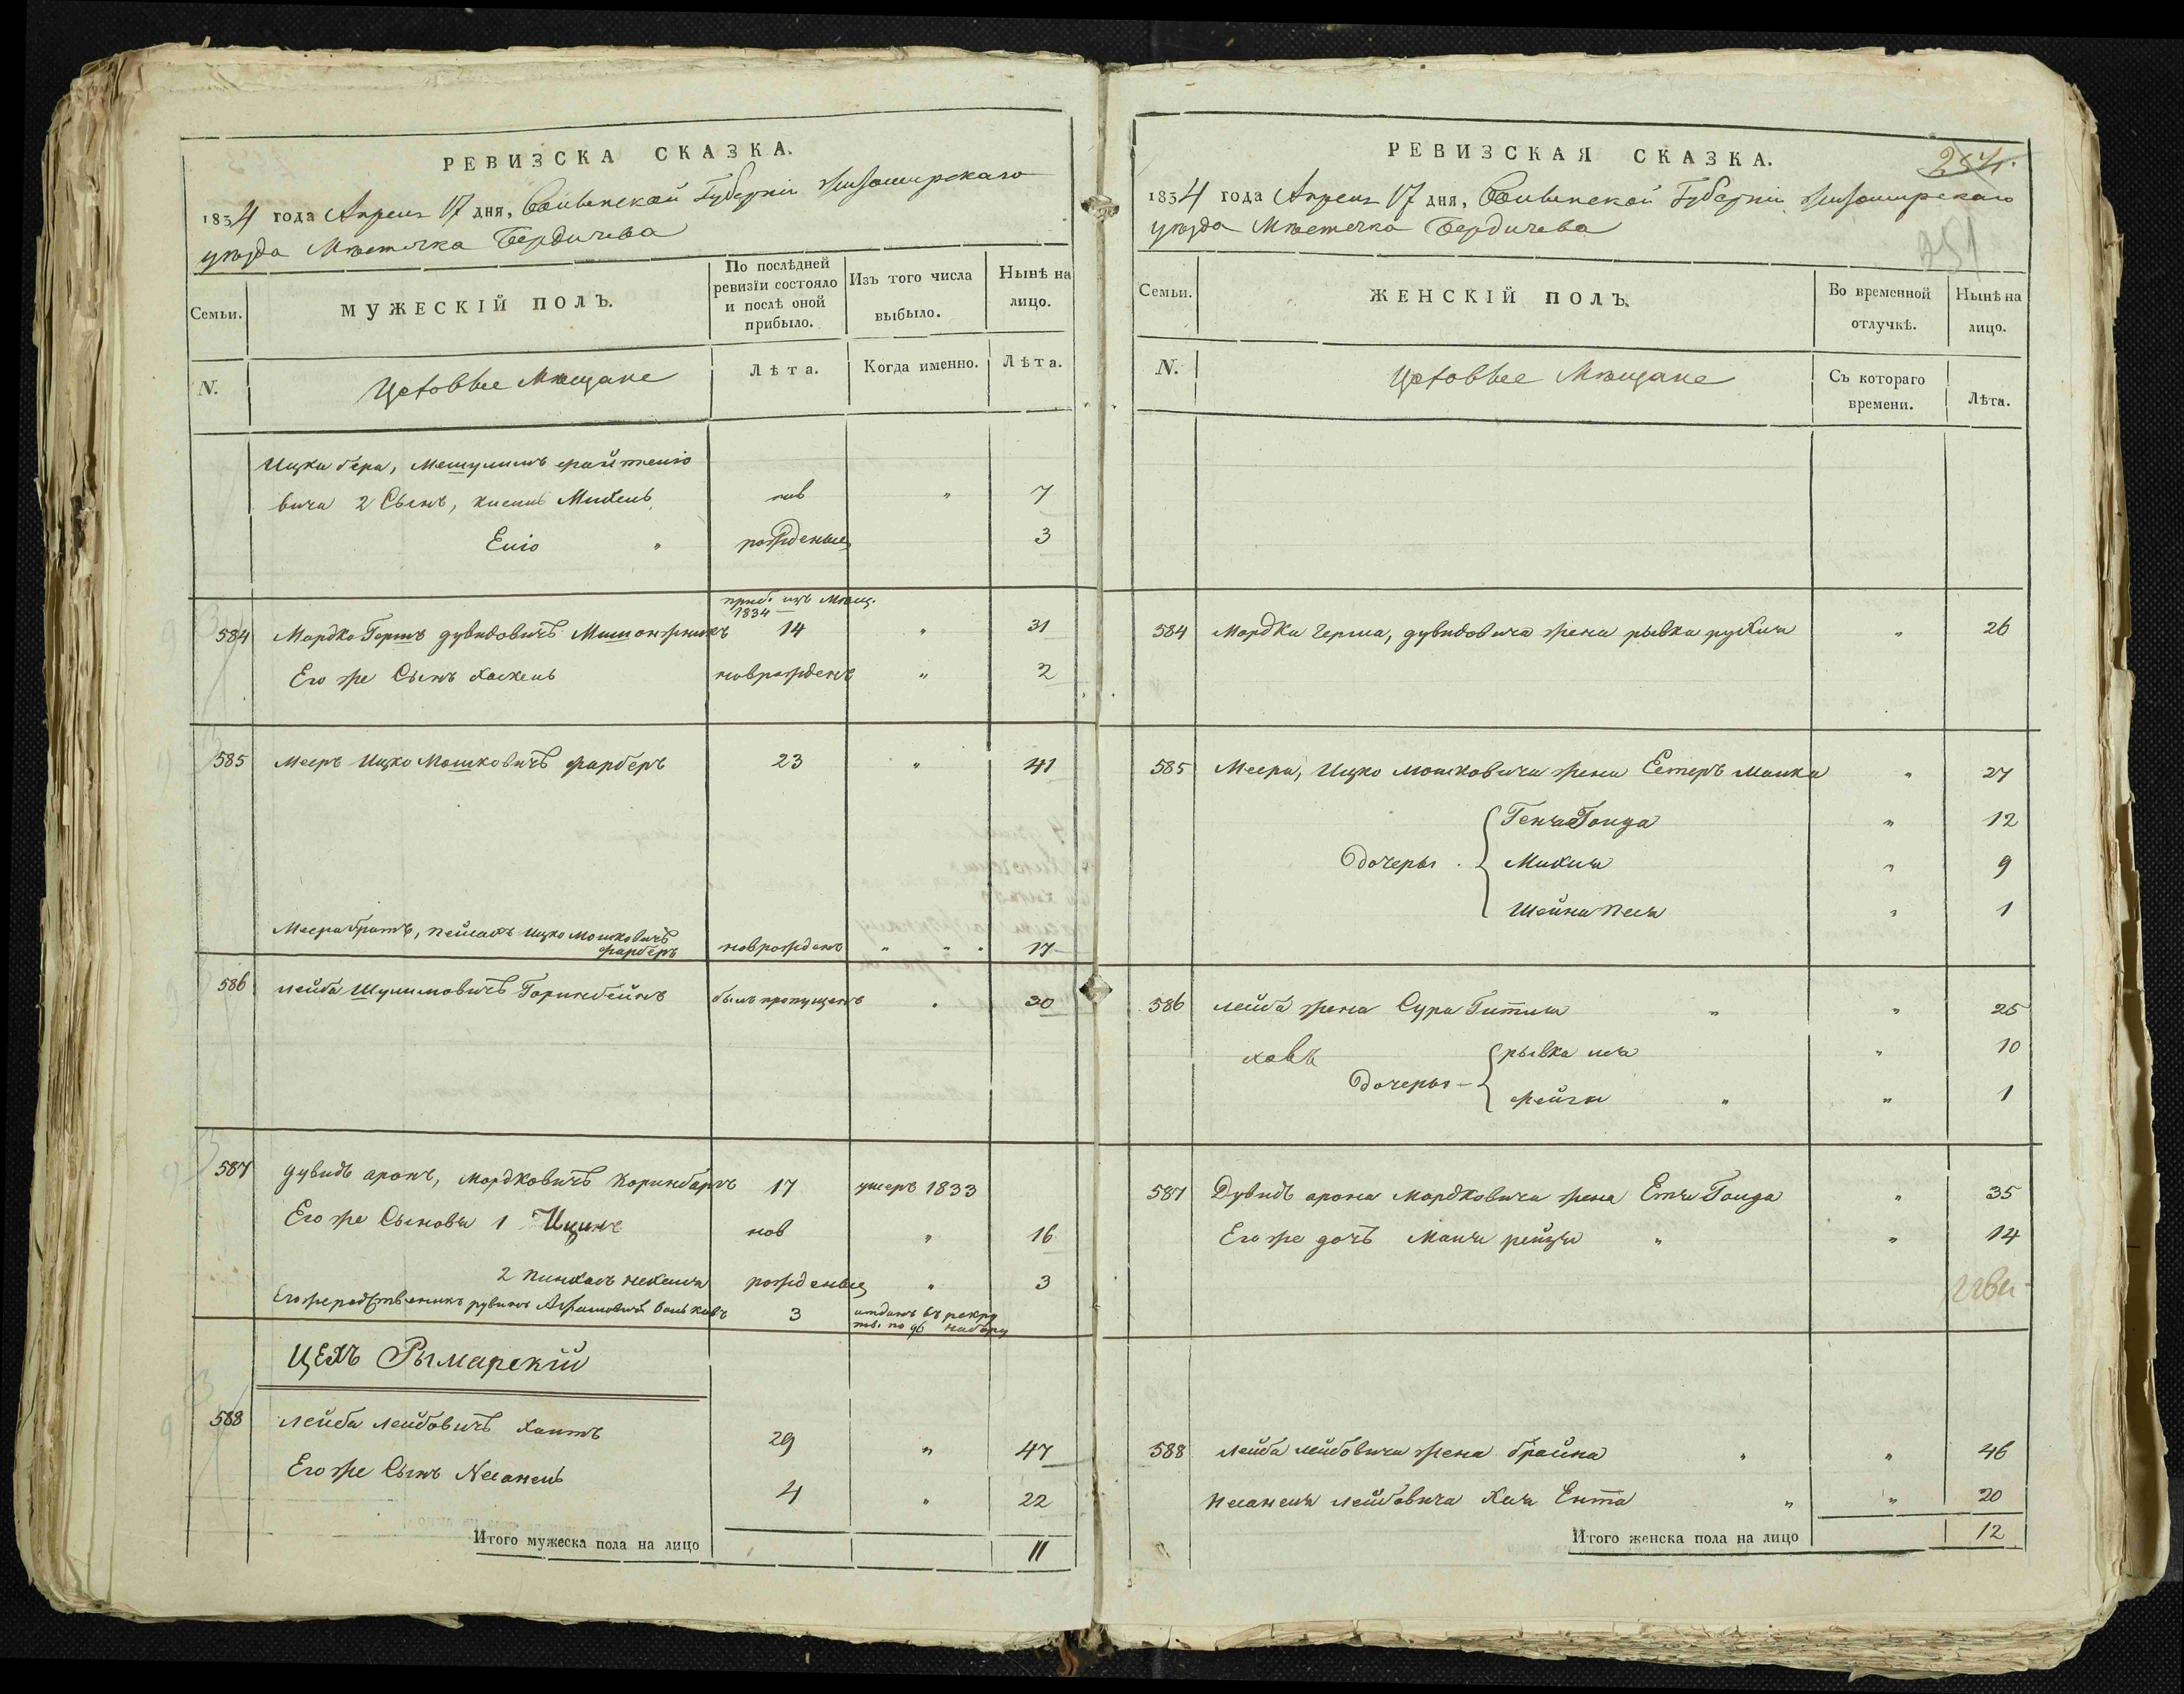 РЕВИЗСКА СКАЗКА.
1834 года Апреля 17 дня, Волынской Губерніи Житомирскаго
уѣзда Мѣстечка Бердичева
Семьи.
МУЖЕСКІЙ ПОЛЪ.
По послѣдней ревизіи состояло и послѣ оной прибыло.
Изъ того числа выбыло.
Нынѣ на лицо.
N.
Цеховые Мѣщане
Лѣта.
Когда именно.
Лѣта.
Ицка бера, Мешулимъ
вича 2 Сынъ, Михель нов " 7
Елио " рожденые 3
приб. изъ Мѣщ. 1834
584 Мордко Гершъ дувидовичъ 14 " 31
Его же Сынъ Хаскель новрожденъ " 2
585 Мееръ Ицко Мошковичъ фарберъ 23 " 41
Меера братъ, пейсахъ Ицко Мошковичъ
фарберъ новрожденъ " " " 17
586 лейба Шулимовичъ Горинбейнъ былъ пропущенъ " 30
587 дувидъ аронъ, Мордковичъ Коринбаръ 17 умеръ 1833
Его же Сыновья 1 Ицикъ нов " 16
2 пинхасъ рожденые " 3
Его же родственикъ рувинъ 3 отданъ въ рекру
ты. по 96 набору
ЦЕХЪ Рымарскій
588 лейба лейбовичъ 29 " 47
Его же Сынъ Несанель 4 " 22
Итого мужеска пола на лицо 11
РЕВИЗСКАЯ СКАЗКА.
254.
1834 года Апреля 17 дня, Волынской Губерніи Житомирскаго
уѣзда Мѣстечка Бердичева
251
Семьи.
ЖЕНСКІЙ ПОЛЪ.
Во временной отлучкѣ.
Нынѣ на лицо.
N.
Цеховые Мѣщане
Съ котораго времени.
Лѣта.
584 Мордка Герша, дувидовича жена рывка рухля " 26
585 Меера, Ицко Мошковича жена Естеръ Малка " 27
Геня Голда " 12
Дочеры Михля " 9
Шейна песя " 1
586 лейба жена Сура Гитля " " 25
рывка лея " 10
Дочеры фейга " " 1
587 Дувидъ арона Мордковича жена Етя Голда " 35
Его же дочъ Маня рейзя " " 14
588 лейба лейбовича жена брайна " " 46
Несанеля лейбовича Хая Ента " " 20
Итого женска пола на лицо 12